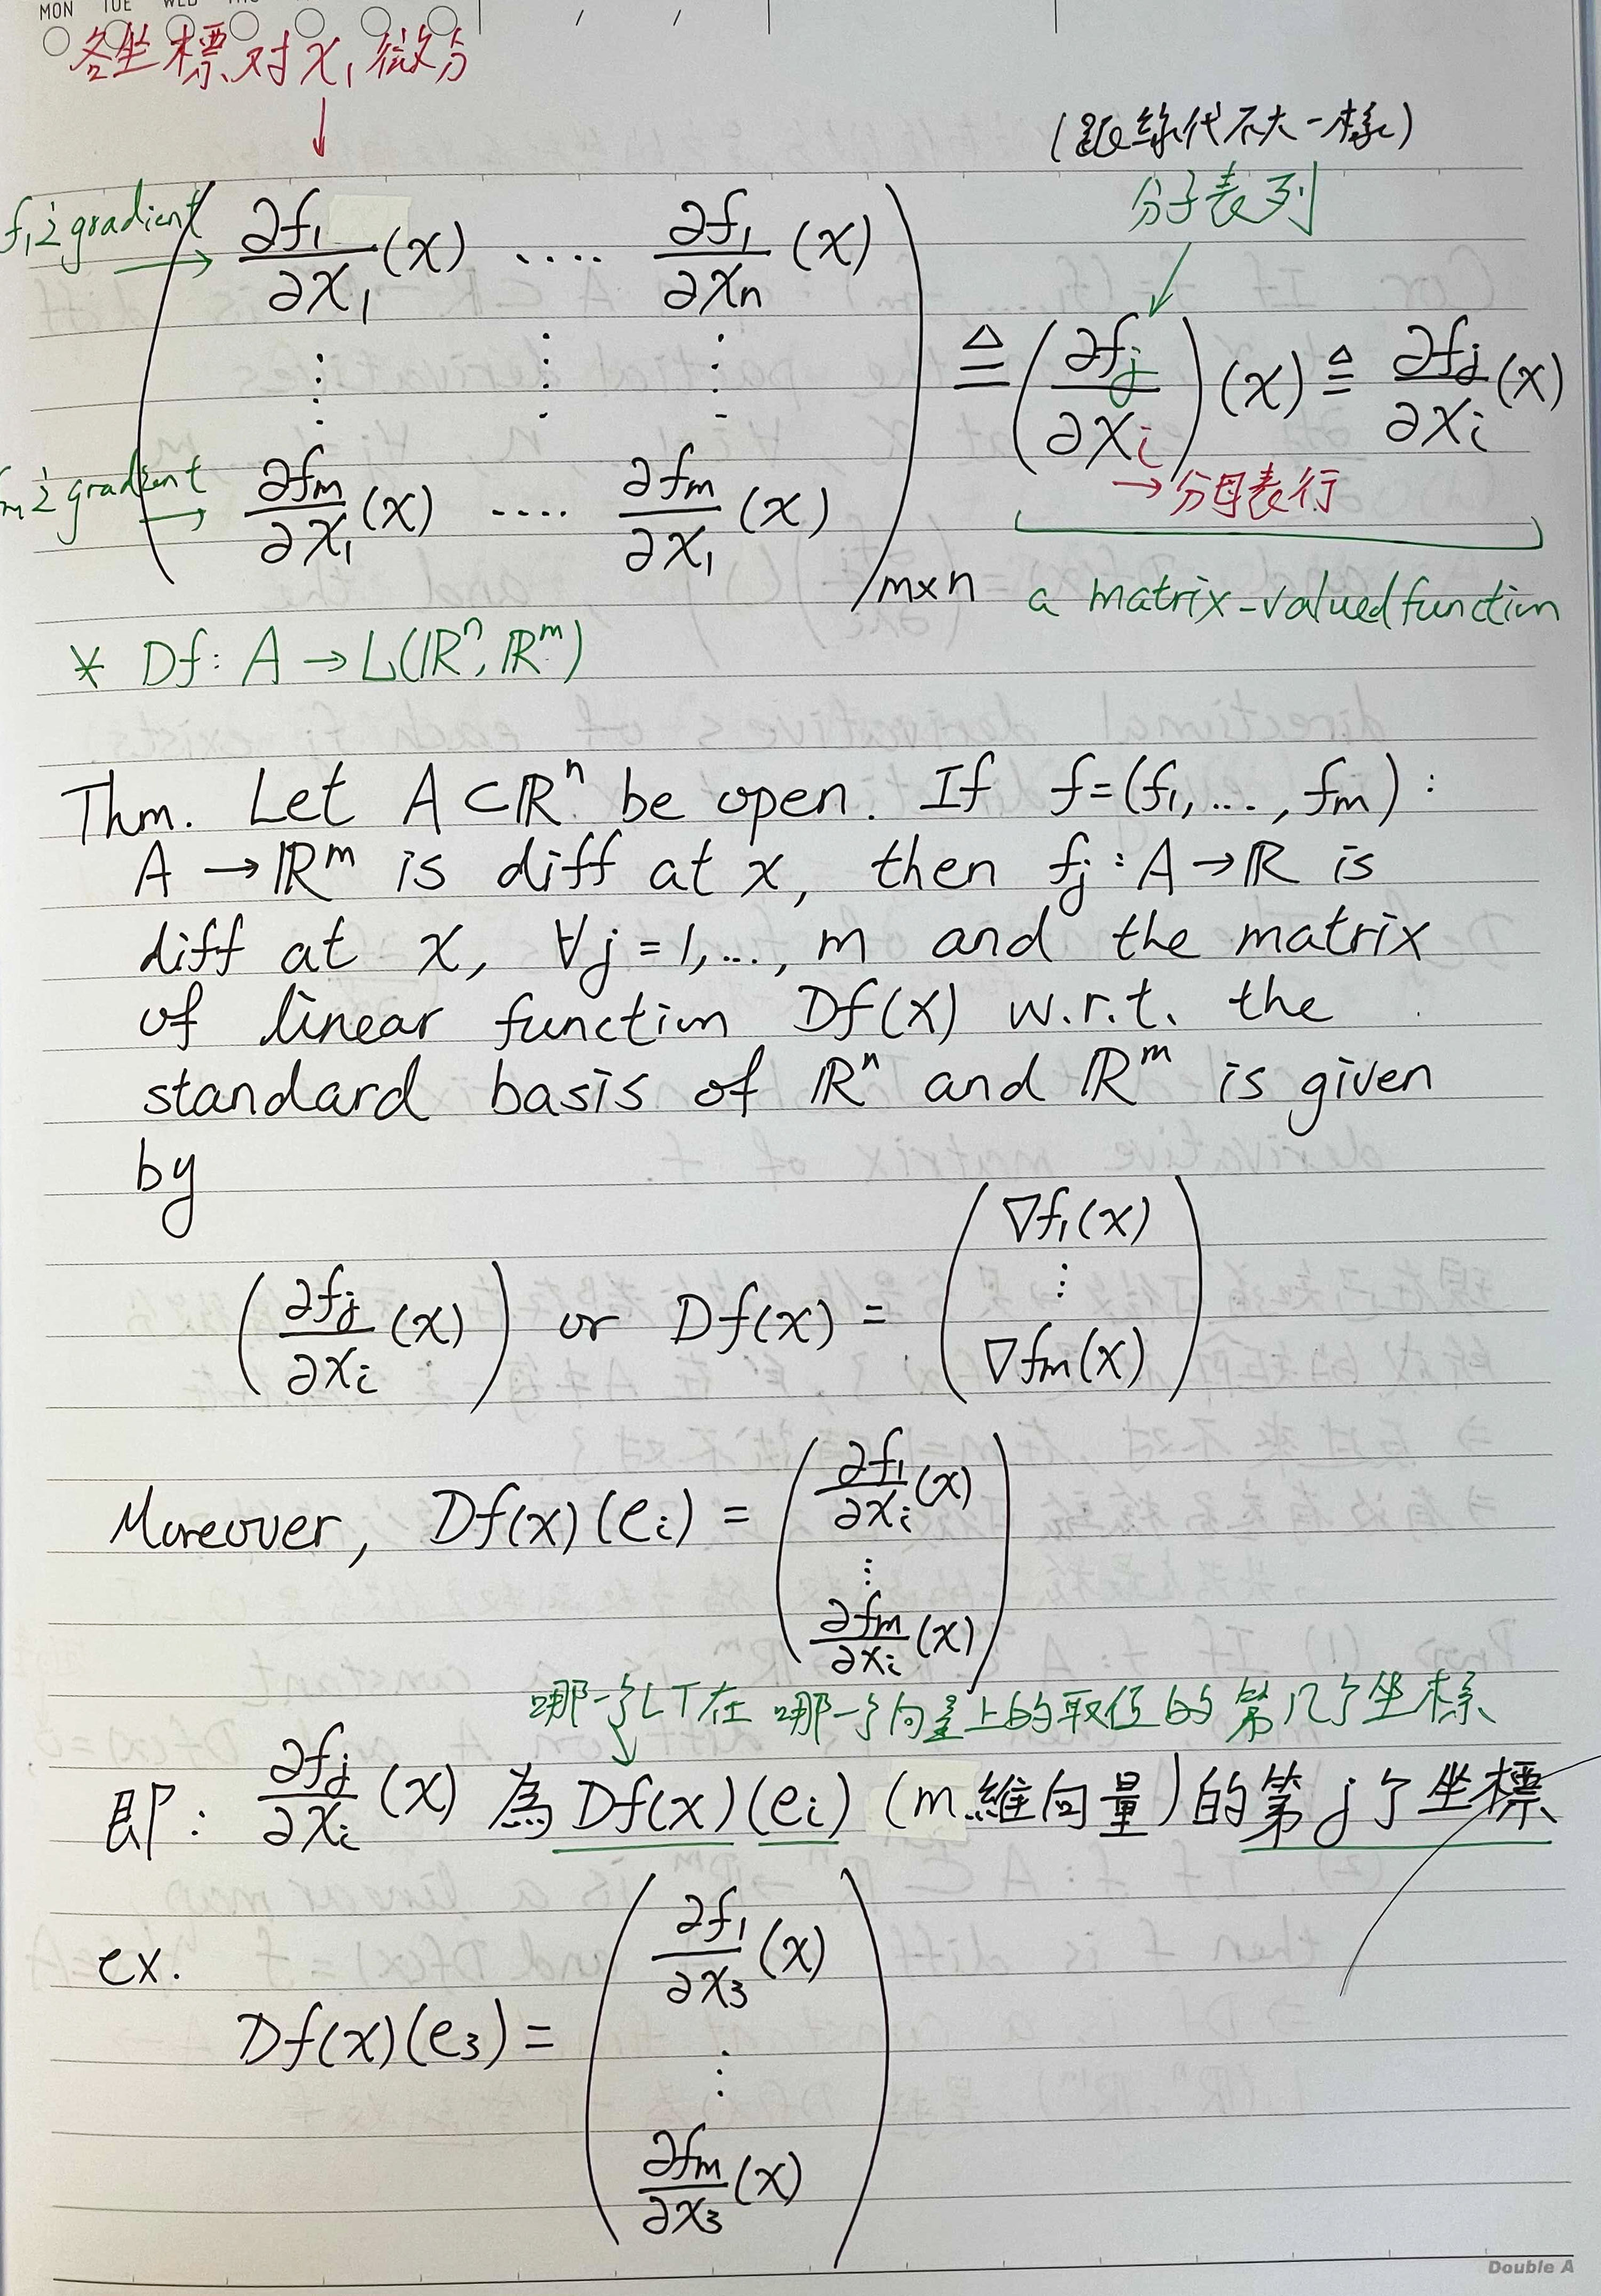 MON TUE WED THU
各坐標对 x₁ 微分
↓
(跟線代不大一樣)
分子表列
f₁之gradient → ( ∂f₁/∂x₁ (x) .... ∂f₁/∂xₙ (x)
⋮ ⋮ ⋮ ≜ (∂fⱼ/∂xᵢ)(x) ≜ ∂fⱼ/∂xᵢ (x)
→分母表行
之gradient → ∂fₘ/∂x₁ (x) .... ∂fₘ/∂x₁ (x) ) m×n
a matrix-valued function
* Df: A → L(ℝⁿ, ℝᵐ)
Thm. Let A⊂ℝⁿ be open. If f=(f₁,...,fₘ):
A→ℝᵐ is diff at x, then fⱼ:A→ℝ is
diff at x, ∀j=1,..., m and the matrix
of linear function Df(x) w.r.t. the
standard basis of ℝⁿ and ℝᵐ is given
by
( ∂fⱼ/∂xᵢ (x) ) or Df(x) = ( ∇f₁(x) ⋮ ∇fₘ(x) )
Moreover, Df(x)(eᵢ) = ( ∂f₁/∂xᵢ (x) ⋮ ∂fₘ/∂xᵢ (x) )
哪一个LT在 哪一个向量上的取值的 第几个坐标
即: ∂fⱼ/∂xᵢ (x) 為 Df(x)(eᵢ) (m維向量)的第j个坐標
ex.
Df(x)(e₃) = ( ∂f₁/∂x₃ (x) ⋮ ∂fₘ/∂x₃ (x) )
Double A